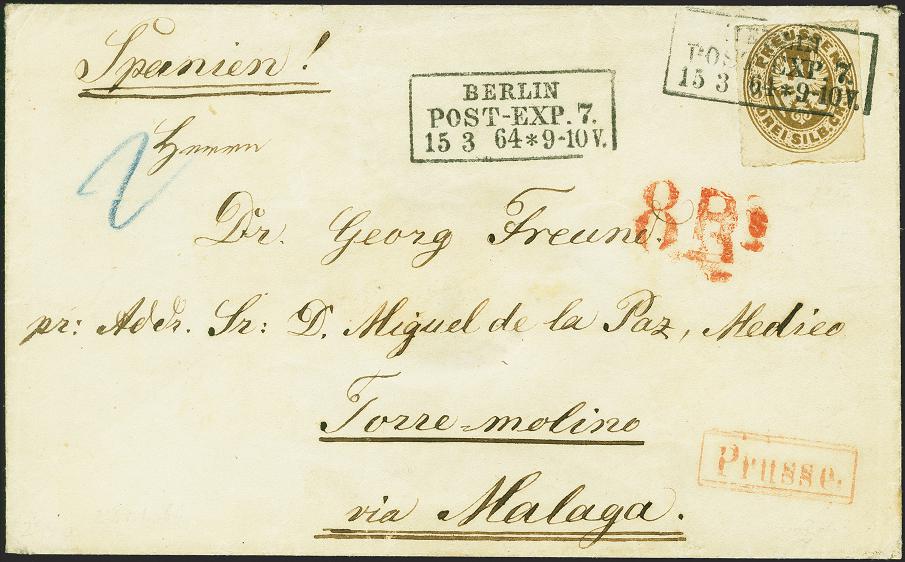 Spanien!
BERLIN
POST-EXP. 7.
15 3 64*9-10V.
POST EXP. 7.
15 3 64*9-10V.
PREUSSEN
DREI SILB. GR.
Herrn
2
8 Rs
Dr. Georg Freund.
pr: Addr. Sr: D. Miguel de la Paz, Medico
Torre=molino
Prusse.
via Malaga.